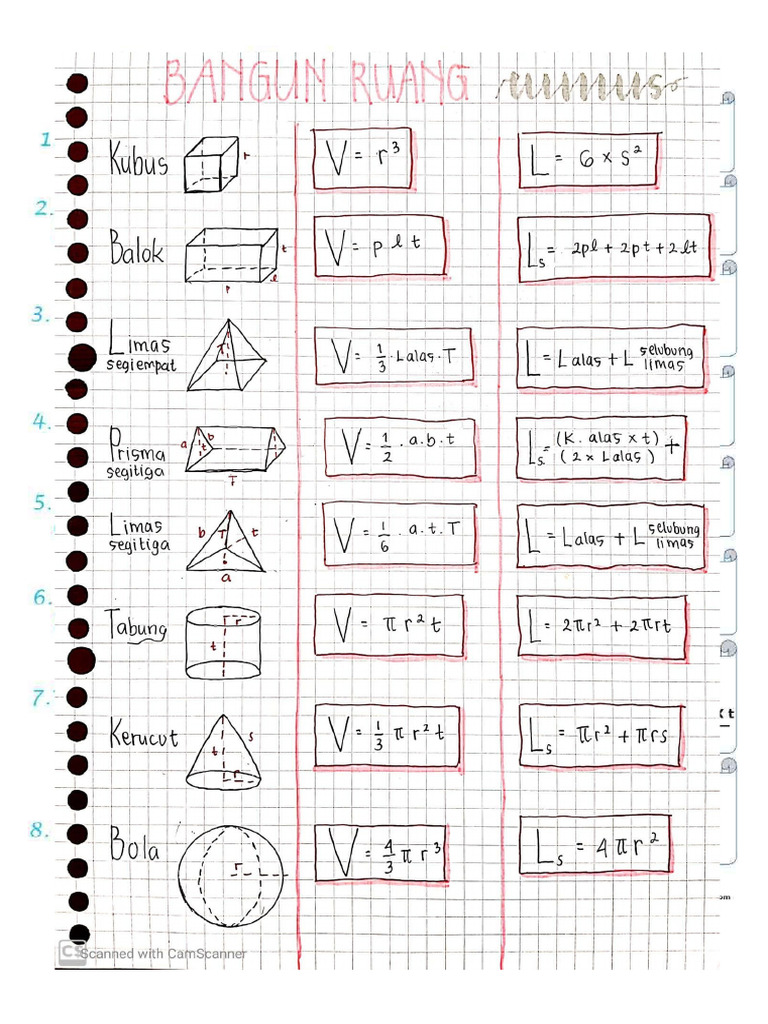 BANGUN RUANG rumus
1.
Kubus
r
V = r³
L = 6 × s²
2.
Balok
t
p
l
V = p l t
Ls = 2pl + 2pt + 2lt
3.
Limas
segiempat
T
V = 1/3 · Lalas · T
L = Lalas + L selubung limas
4.
Prisma
segitiga
a b
t
T
V = 1/2 · a . b . t
Ls = (K. alas × t) +
(2 × Lalas)
5.
Limas
segitiga
b T t
a
V = 1/6 · a . t . T
L = Lalas + L selubung limas
6.
Tabung
r
t
V = π r² t
L = 2πr² + 2πrt
7.
Kerucut
s
t
r
V = 1/3 π r² t
Ls = πr² + πrs
8.
Bola
r
V = 4/3 π r³
Ls = 4πr²
CS Scanned with CamScanner